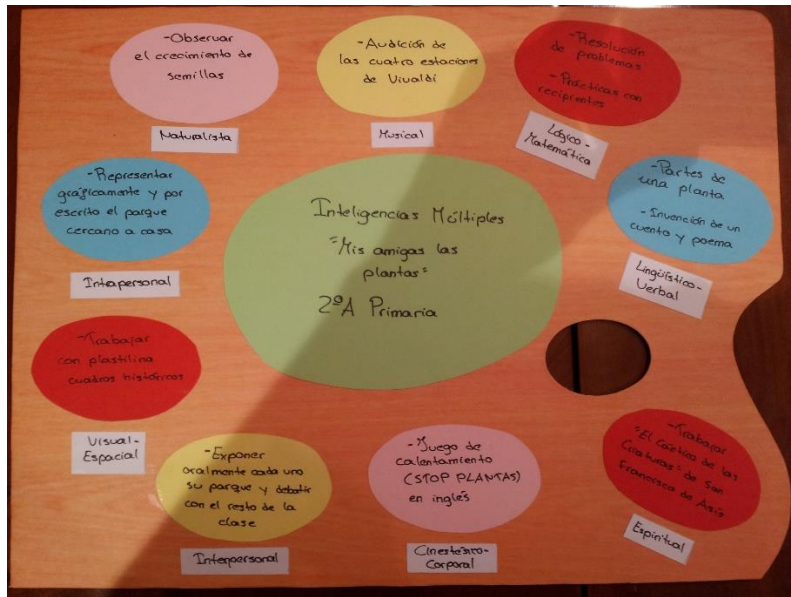 -Observar
el crecimiento de
semillas
Naturalista
-Audición de
las cuatro estaciones
de Vivaldi
Musical
-Resolución
de problemas
-Prácticas con
recipientes
Lógico-
Matemática
-Representar
gráficamente y por
escrito el parque
cercano a casa
Intrapersonal
Inteligencias Múltiples
"Mis amigas las
plantas"
2ºA Primaria
-Partes de
una planta
-Invención de un
cuento y poema
Lingüístico-
Verbal
-Trabajar
con plastilina
cuadros históricos
Visual-
Espacial
-Exponer
oralmente cada uno
su parque y debatir
con el resto de la
clase
Interpersonal
-Juego de
calentamiento
(STOP PLANTAS)
en inglés
Cinestésico-
Corporal
-Trabajar
"El Cántico de las
Criaturas" de San
Francisco de Asís
Espiritual